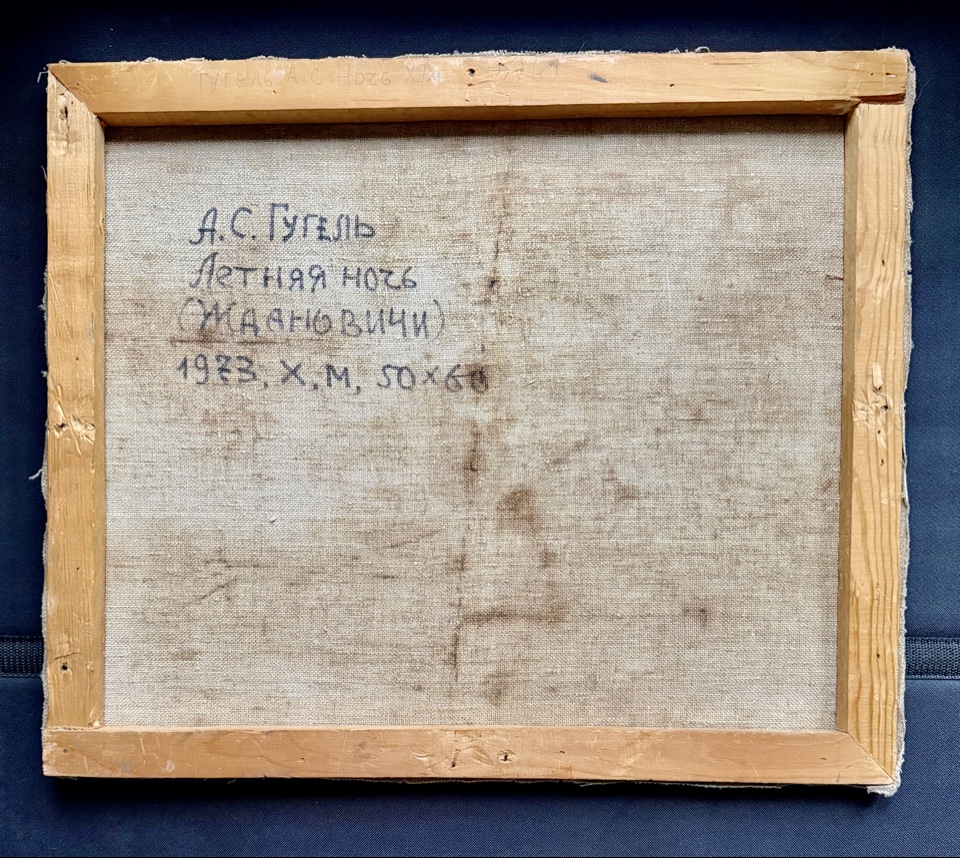 Гугель А.С. Ночь Х/м
А.С. Гугель
Летняя ночь
(Ждановичи)
1973, Х, М, 50×60